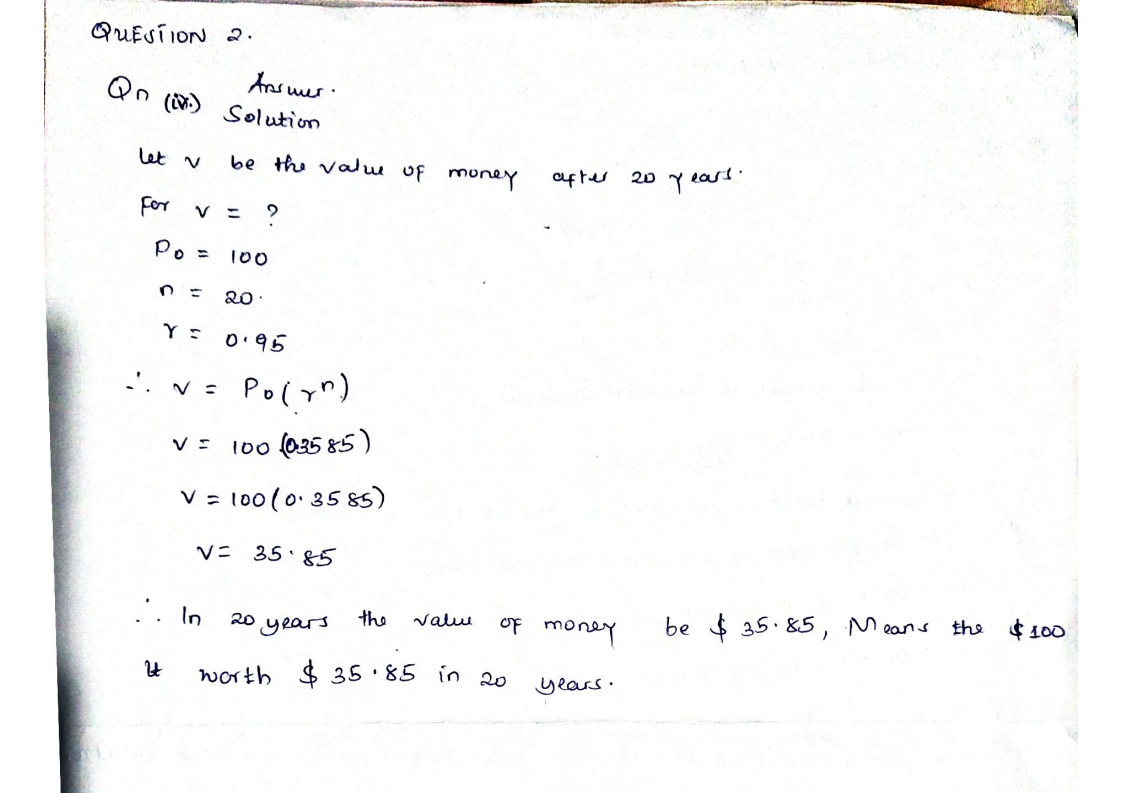 QUESTION 2.
Answer.
Qn (iv.) Solution
Let v be the value of money after 20 years.
For v = ?
P0 = 100
n = 20.
r = 0.95
∴ v = P0(rⁿ)
v = 100 (0.3585)
v = 100 (0.3585)
v = 35.85
∴ In 20 years the value of money be $ 35.85, Means the $100
worth $ 35.85 in 20 years.